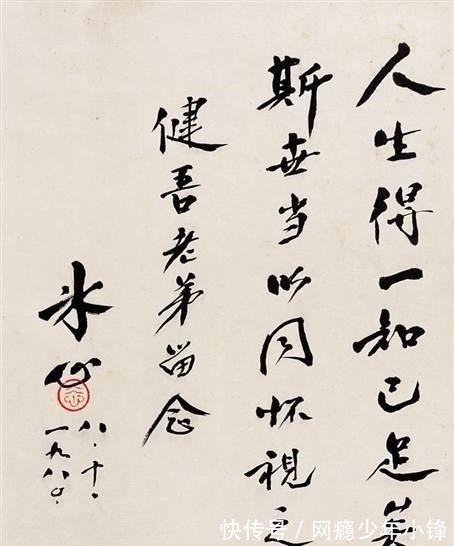 人生得一知己足矣
斯世当以同怀视之
健吾老弟留念
冰心
八.十.
一九八〇.
快传号/网瘾少年小锋